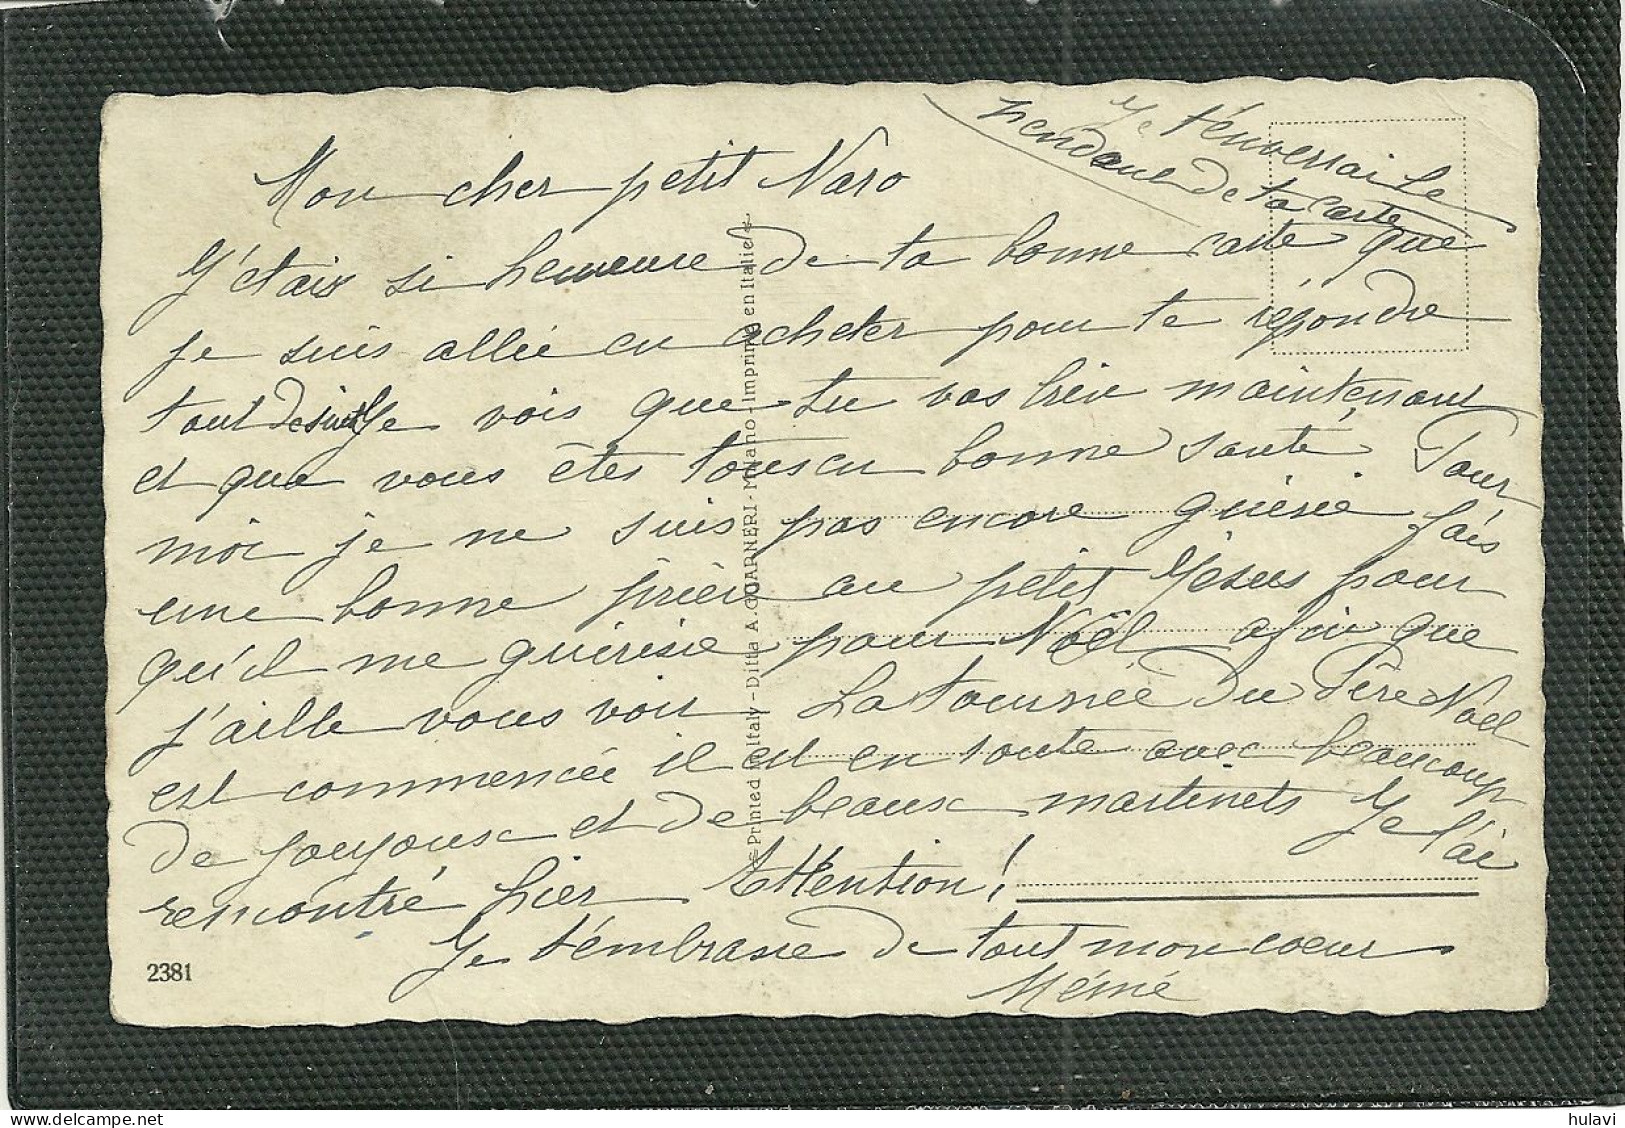 Je t'enverrai le
pendant de ta carte
Mon cher petit Naro
J'étais si heureuse de ta bonne carte que
je suis allée en acheter pour te répondre
tout de suite Je vois que tu vas bien maintenant
et que vous êtes tous en bonne santé. Pour
moi je ne suis pas encore guérie fais
une bonne prière au petit Jésus pour
qu'il me guérisse pour Noël afin que
j'aille vous voir La tournée du Père Noël
est commencée il est en route avec beaucoup
de joujoux et de beaux martinets Je l'ai
rencontré hier Attention!
Je t'embrasse de tout mon coeur
Mémé
2381
Printed in Italy - Ditta A. GUARNERI - Milano - Imprimé en Italie
hulavi